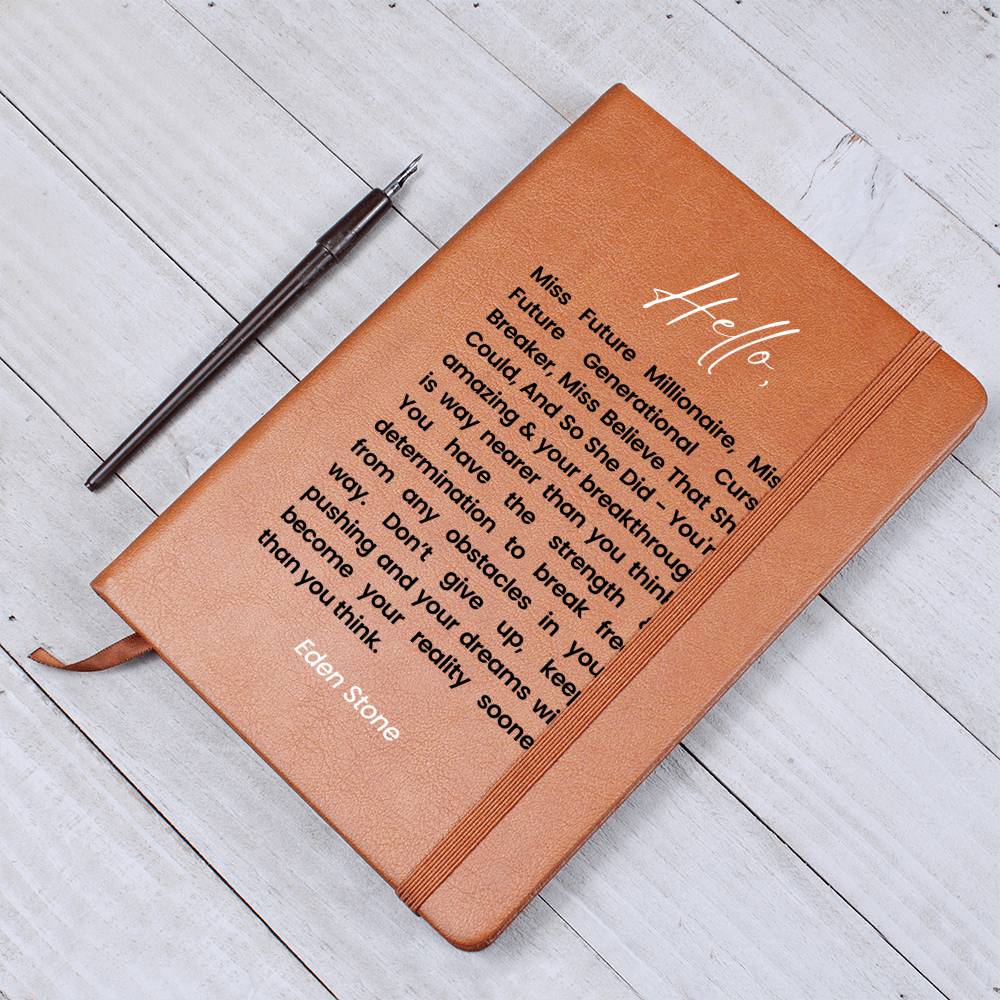 Hello,
Miss Future Millionaire, Mis
Future Generational Curs
Breaker, Miss Believe That Sh
Could, And So She Did – You'r
amazing & your breakthroug
is way nearer than you think
You have the strength
determination to break free
from any obstacles in you
way. Don't give up, keep
pushing and your dreams wi
become your reality soone
than you think.
Eden Stone